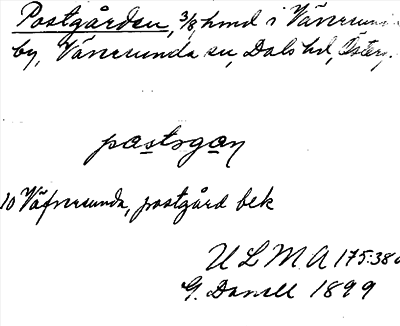 Postgården, 3/8, hmd i Väversunda
by, Väversunda sn, Dals hd, Österg.
postsgan
10 Väfversunda, postgård bek
ULMA 175:38
G. Danell 1899